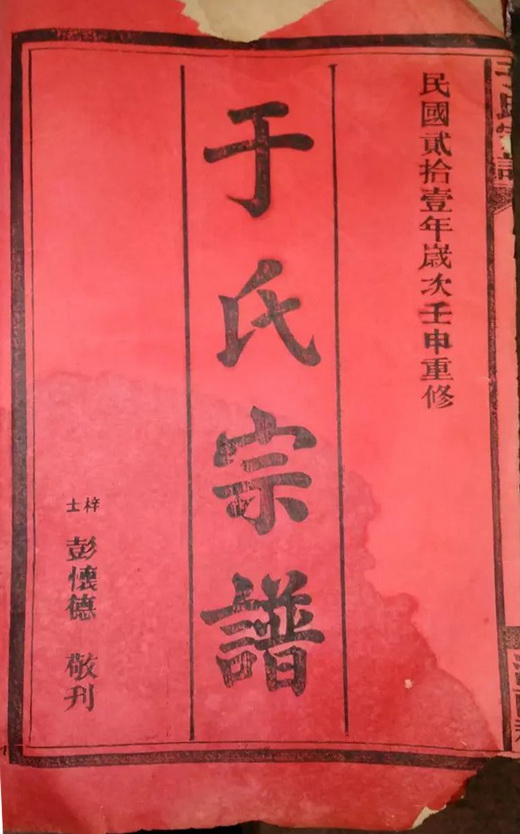 民國貳拾壹年歲次壬申重修
于氏宗譜
梓士 彭懷德 敬刊
于氏宗譜